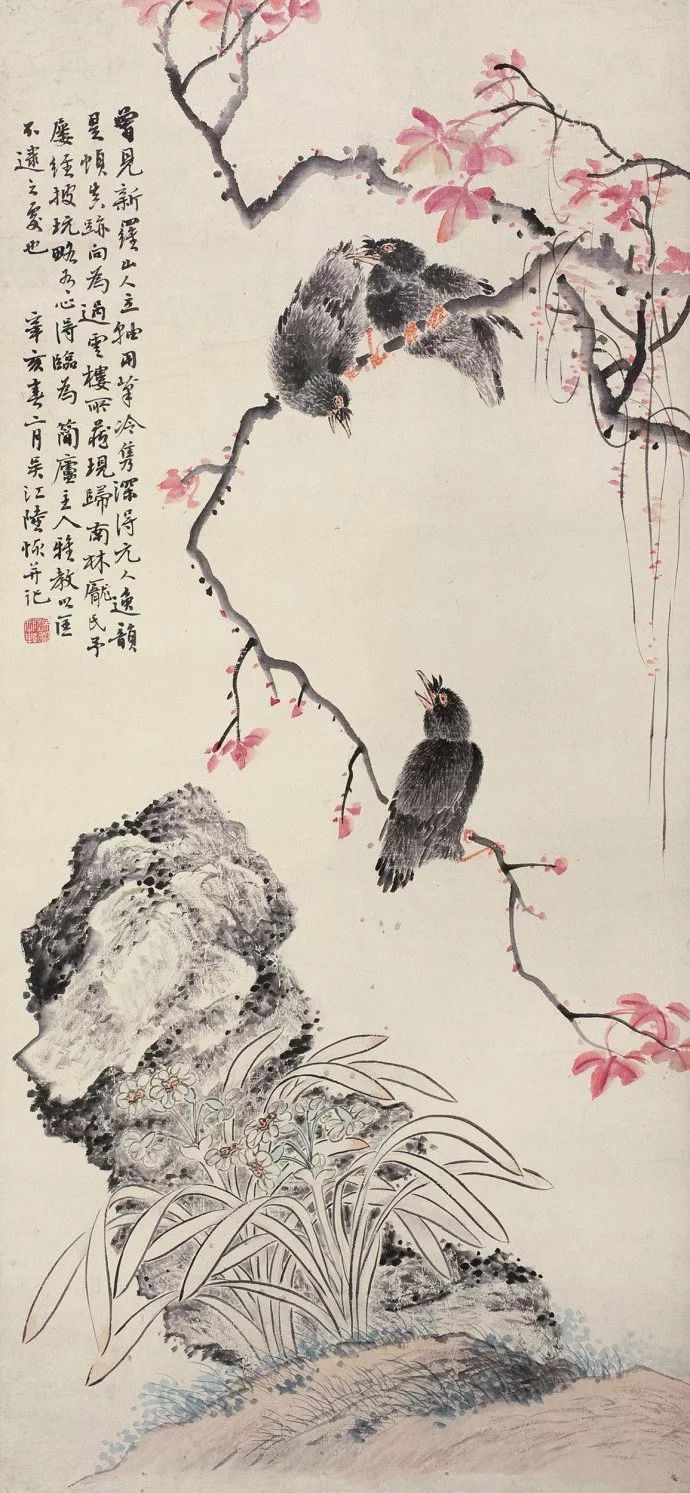 曾見新羅山人立軸用筆冷雋深得元人逸韻
是幀真跡向為過雲樓所藏現歸南林龐氏予
屢經披玩略有心得臨為簡廬主人雅教以匡
不逮之處也　辛亥春二月吳江陸恢并記